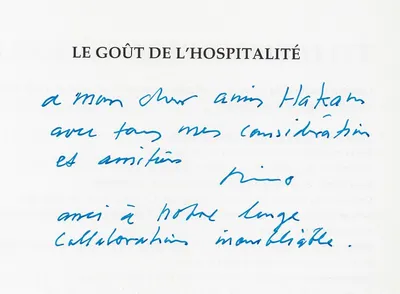 LE GOÛT DE L'HOSPITALITÉ
a mon cher amis Hakam
avec tous mes considération
et amitiés
à notre longe
collaboration inoubliable.